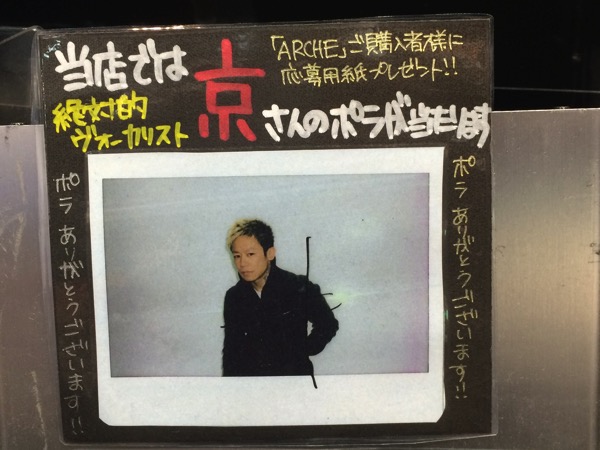 当店では
京
「ARCHE」ご購入者様に
応募用紙プレゼント!!
絶対的
ヴォーカリスト
さんのポラが当たります
ポラ ありがとうございます!!
ポラ ありがとうございます!!